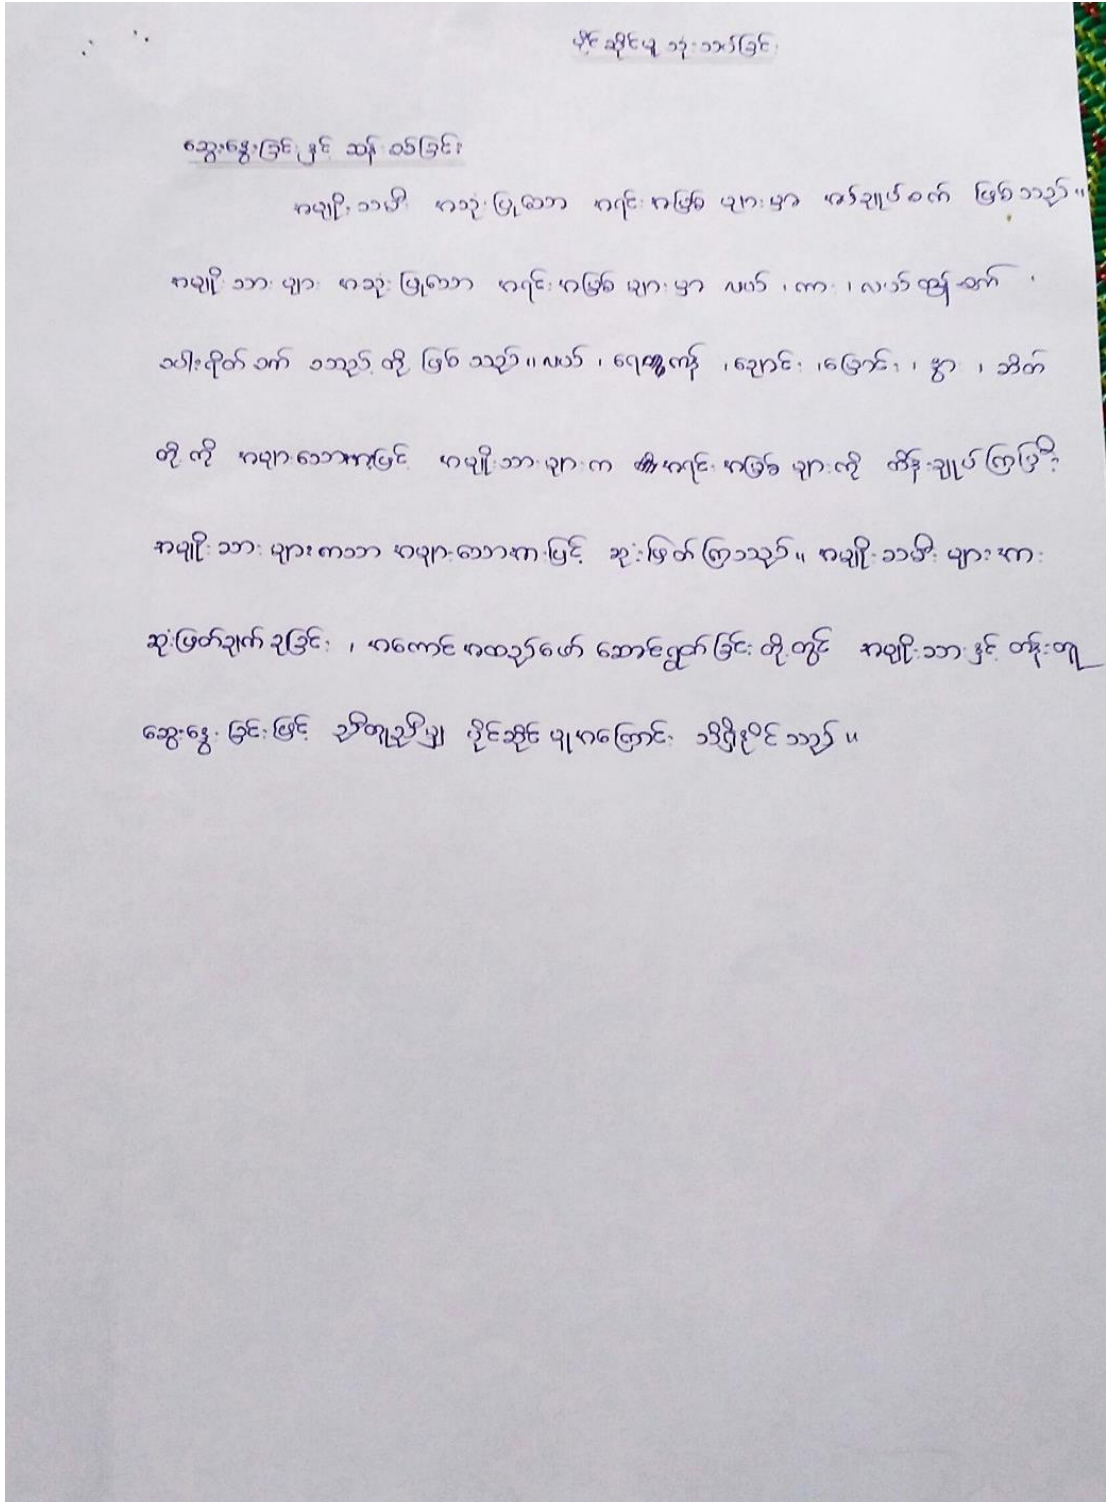 ပိုင်ဆိုင်မှု သုံးသပ်ခြင်း
ဆွေးနွေးခြင်းနှင့် ဆန်းစစ်ခြင်း
အမျိုးသမီး အသုံးပြုသော အရင်းအမြစ် များမှာ အပ်ချုပ်စက် ဖြစ်သည်။
အမျိုးသား များ အသုံးပြုသော အရင်းအမြစ် များမှာ လယ်၊ ကား၊ လယ်ထွန်စက်၊
စပါးရိတ်စက် စသည့် တို့ ဖြစ်သည်။ လယ်၊ ရေကန်၊ ချောင်း၊ မြောင်း၊ နွား၊ ဆိတ်
တို့ကို အများသောအားဖြင့် အမျိုးသားများက အရင်းအမြစ် များကို ထိန်းချုပ်ကြပြီး
အမျိုးသား များကသာ အများသောအားဖြင့် ဆုံးဖြတ်ကြသည်။ အမျိုးသမီး များအား
ဆုံးဖြတ်ချက်ချခြင်း၊ အကောင်အထည်ဖော် ဆောင်ရွက်ခြင်း တို့တွင် အမျိုးသားနှင့် တန်းတူ
ဆွေးနွေးခြင်းဖြင့် ညီတူညီမျှ ပိုင်ဆိုင်မှုအကြောင်း သိရှိနိုင်သည်။